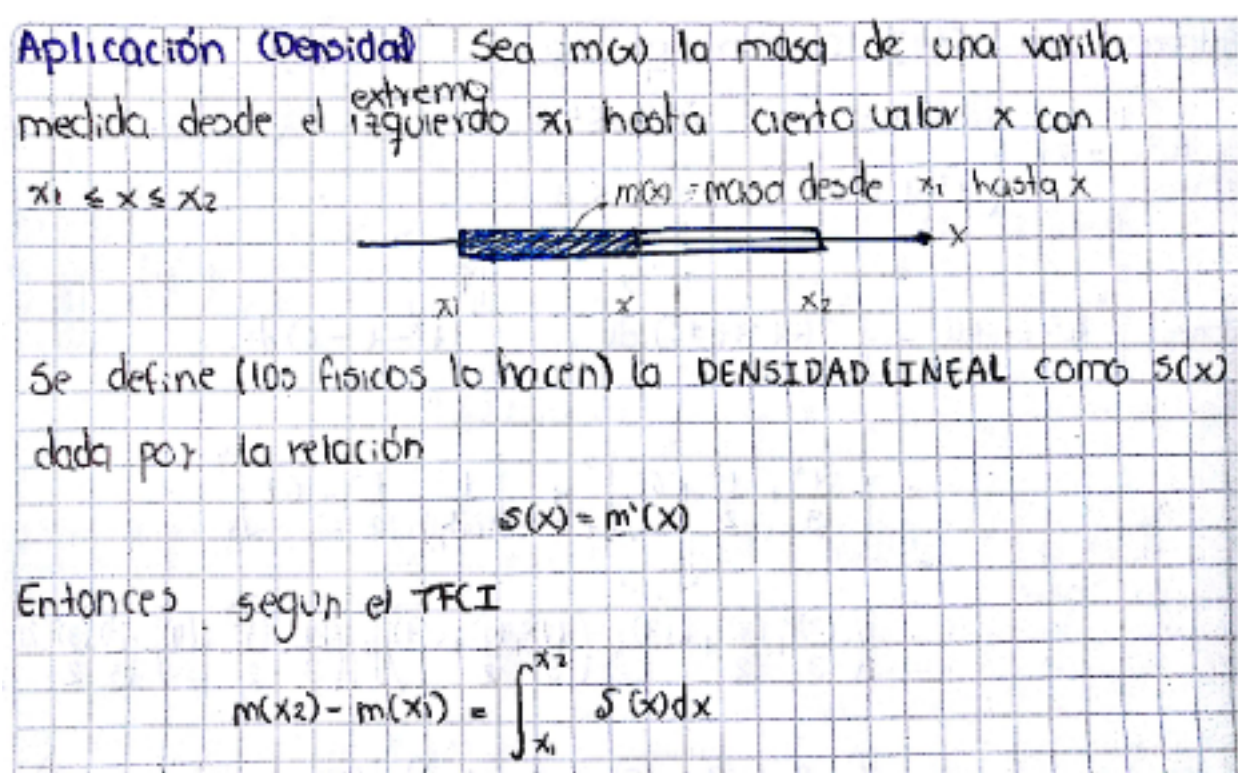 Aplicación (Densidad) Sea m(x) la masa de una varilla
medida desde el extremo izquierdo x₁ hasta cierto valor x con
x₁ ≤ x ≤ x₂
m(x) = masa desde x₁ hasta x
x
x₁ x x₂
Se define (los fisicos lo hacen) la DENSIDAD LINEAL como S(x)
dada por la relación
S(x) = m'(x)
Entonces segun el TFCI
m(x₂) - m(x₁) = ∫_{x₁}^{x₂} S(x)dx